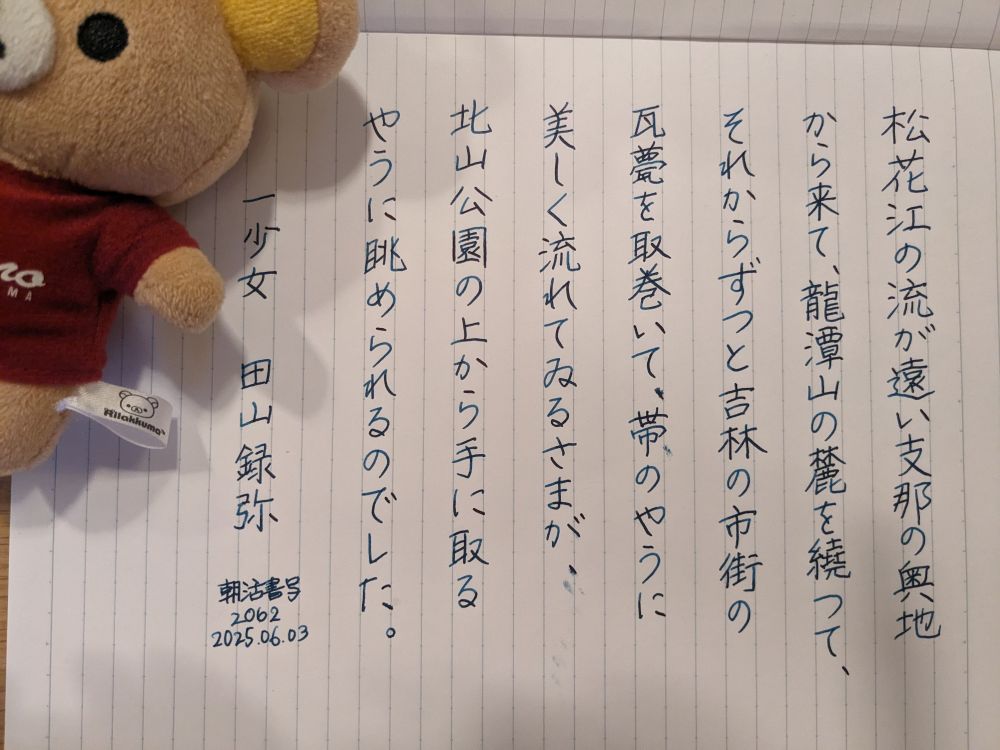 松花江の流が遠い支那の奥地
から来て、龍潭山の麓を繞つて、
それからずつと吉林の市街の
瓦甍を取巻いて、帯のやうに
美しく流れてゐるさまが、
北山公園の上から手に取る
やうに眺められるのでした。
一少女 田山録弥
朝活書写
2062
2025.06.03
Rilakkuma
MA